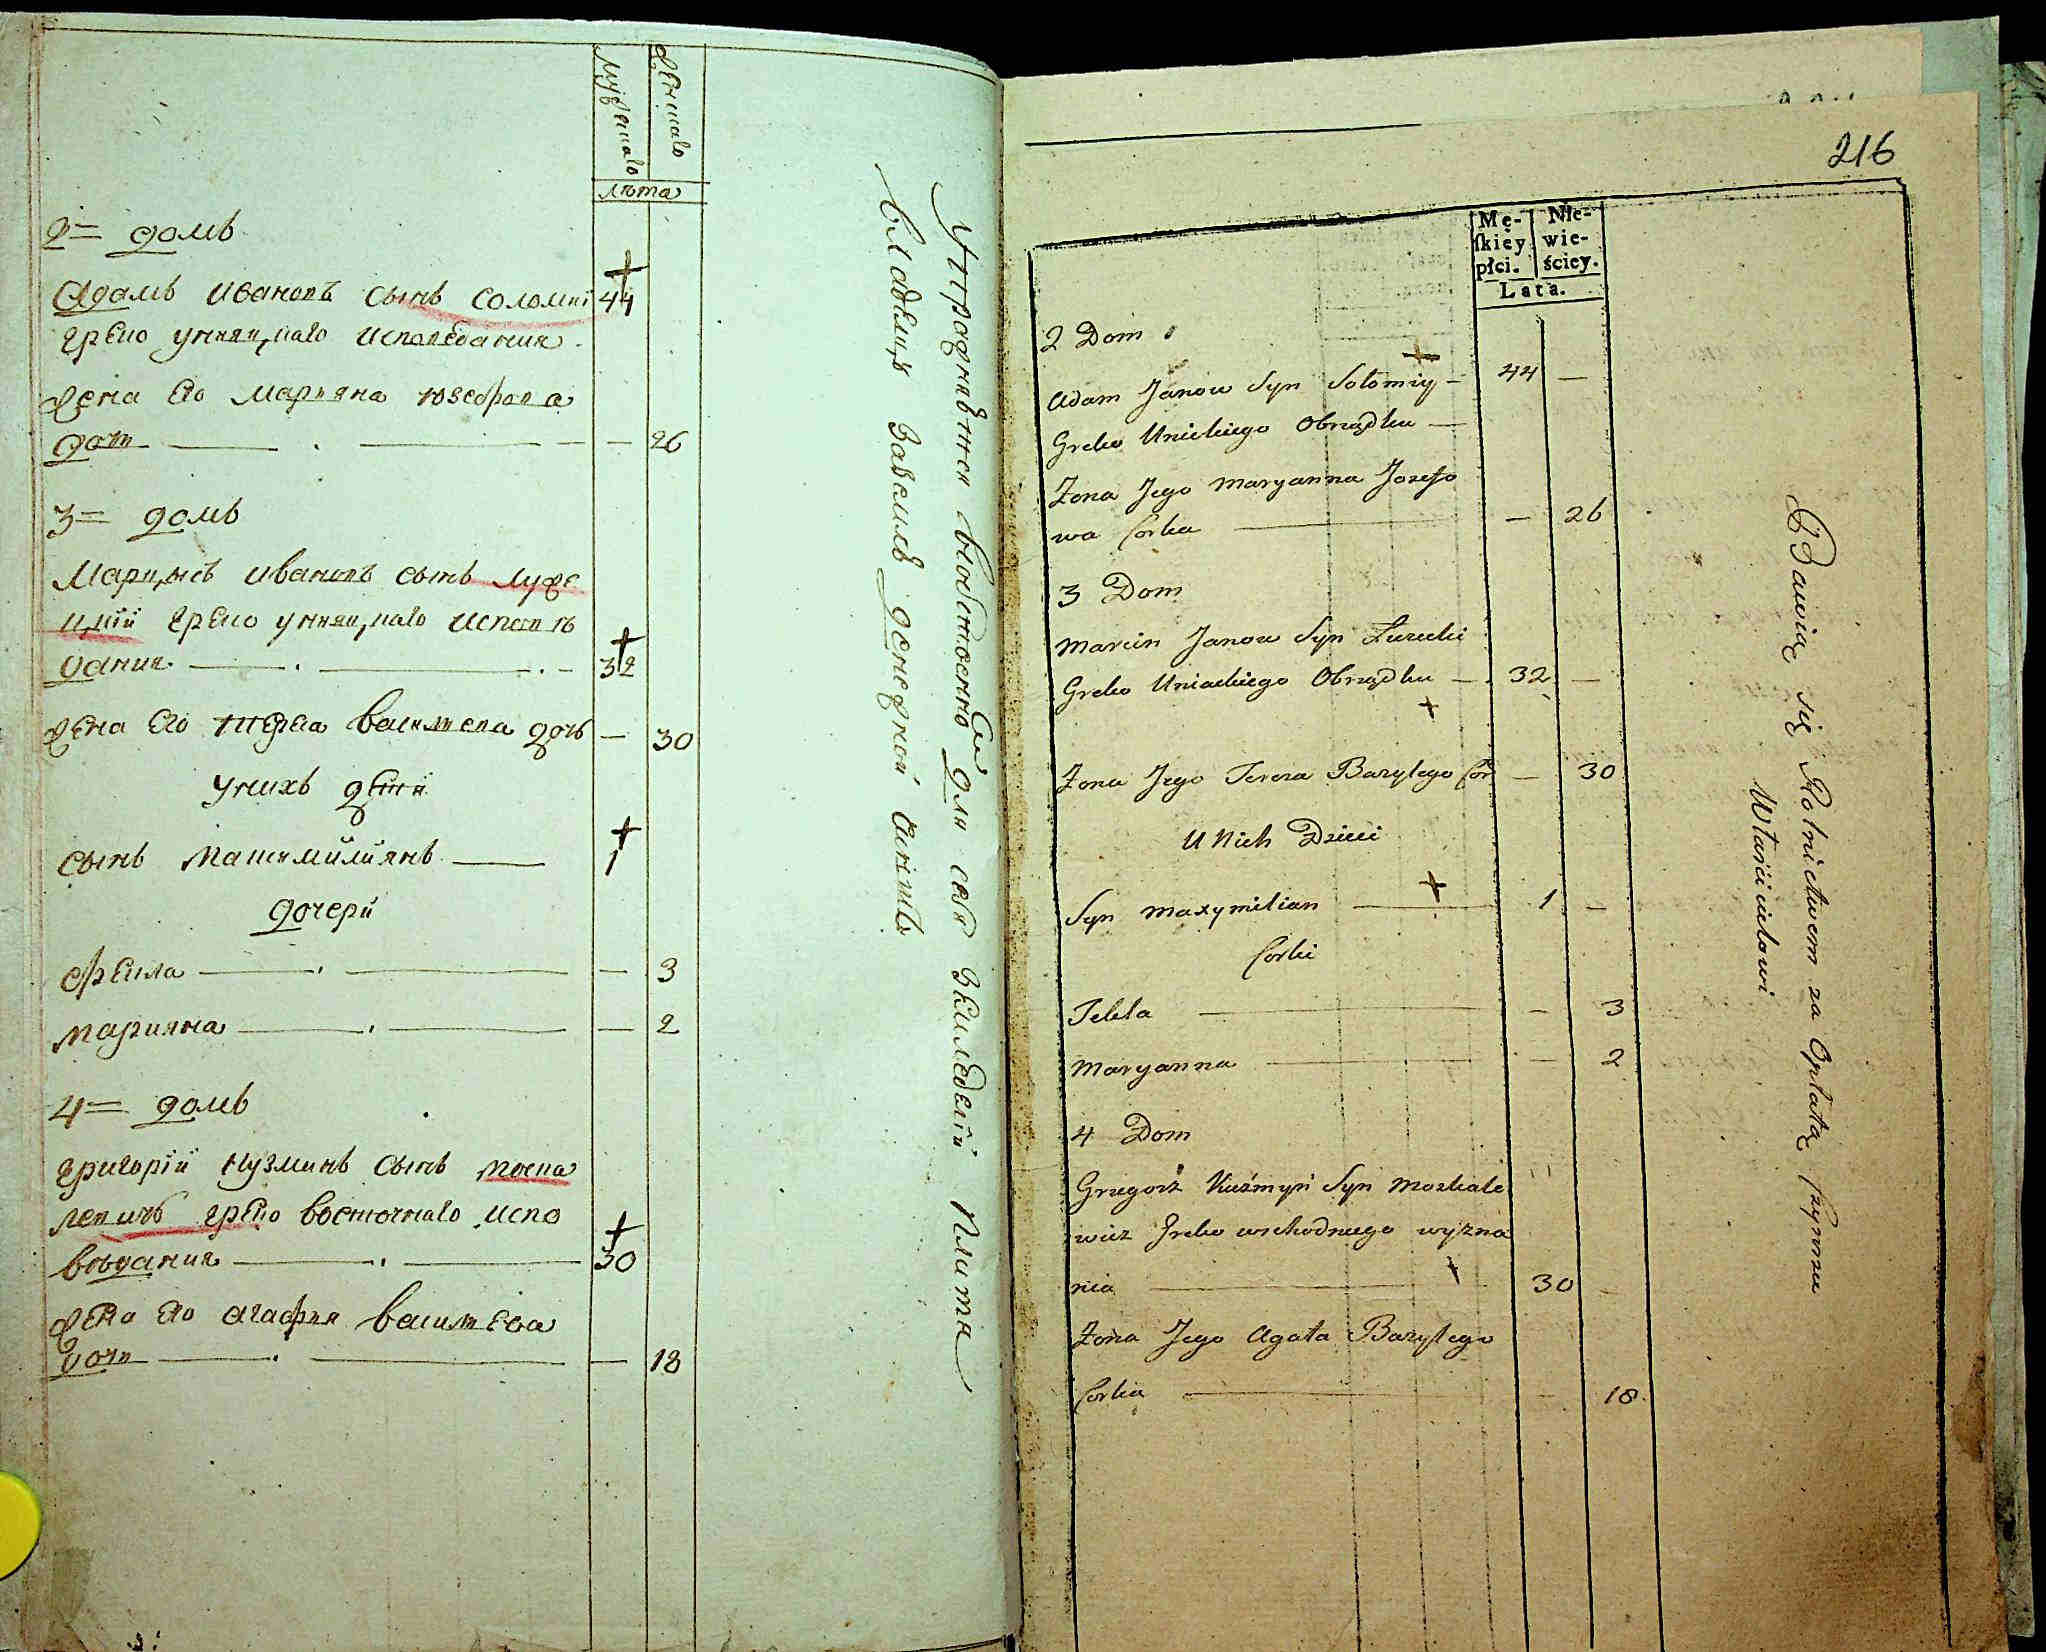 мужеска
женска
лѣта
2= домъ
Адамъ Ивановъ сынъ Соломий 44
греко униятцкаго исповедания
жена его Марияна юзефова
дочь — 26
3= домъ
Марцынъ Ивановъ сынъ Луже
цкий греко униятцкаго исповѣ
дания — 32
жена его Тереса васильева дочь — 30
у них дети
сынъ Максимилиянъ — 1
дочери
Фекла — 3
Марияна — 2
4= домъ
Григорий Кузминъ сынъ Моска
левичъ греко восточнаго испо
вѣдания — 30
жена его Агафия васильева
дочь — 18
для себя земледелия платя
владельцу денежной
216
Mę-skiey płci. Nie-wie-ściey.
Lata.
2 Dom
Adam Janow Syn Sołomiy — 44 —
Greko Unickiego Obrządku —
Żona Jego Maryanna Jozefo
wa Corka — 26
3 Dom
Marcin Janow Syn Łuzecki
Greko Uniackiego Obrządku — 32 —
Żona Jego Teresa Bazylego Cor — 30
U Nich Dzieci
Syn Maxymilian — 1 —
Corki
Tekla — 3
Maryanna — 2
4 Dom
Grzegorz Kuźmyn Syn Moskale
wicz Greko wschodniego wyzna
nia — 30 —
Żona Jego Agata Bazylego
Corka — 18
Bawią się Rolnictwem za Opłatą Czynszu
Właścicielowi